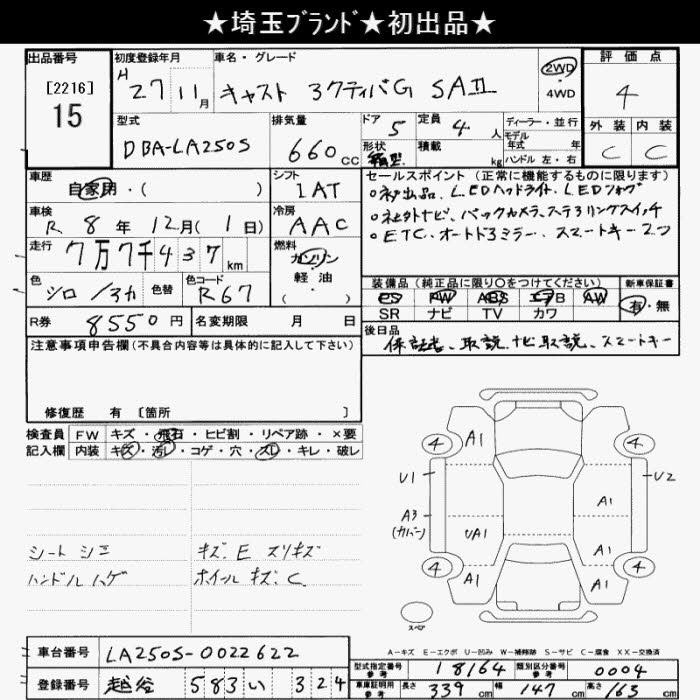 ★埼玉ブランド★初出品★
出品番号
[2216]
15
初度登録年月
H 27 11月
車名・グレード
キャスト アクティバG SAⅡ
2WD・4WD
評価点
4
外装 内装
C C
型式
DBA-LA250S
排気量
660cc
ドア 5
形状 箱型
定員 4人
積載 kg
ディーラー・並行
モデル年式 年式
ハンドル 左・右
車歴
自家用・( )
シフト
IAT
セールスポイント (正常に機能するものに限ります)
○初出品、LEDヘッドライト、LEDフォグ
○社外ナビ、バックカメラ、ステアリングスイッチ
○ETC、オートドアミラー、スマートキー2つ
車検
R 8年 12月( 1日)
冷房
AAC
走行
7万7千437km
燃料
ガソリン・軽油・( )
色
シロ/アカ
色替
色コード
R67
装備品 (純正品に限り○をつけてください)
PS PW ABS エアB AW
SR ナビ TV カワ
新車保証書
有・無
R券 8550円
名変期限 月 日
後日品
保証書、取説、ナビ取説、スマートキー
注意事項申告欄(不具合内容等は具体的に記入して下さい)
修復歴 有 [箇所 ]
検査員記入欄
FW キズ・飛石・ヒビ割・リペア跡・×要
内装 キズ・汚レ・コゲ・穴・スレ・キレ・破レ
シート シミ
キズ:E スリキズ
ハンドル ハゲ
ホイール キズ:C
4 A1 4
U1 U2
A3 (カバー) UA1 A1
A1
4 A1 A1 4
スペア
A-キズ E-エクボ U-凹み W-補修跡 S-サビ C-腐食 XX-交換済
車台番号
LA250S-0022622
登録番号
越谷 583 い 324
型式指定番号 参考 18164
類別区分番号 参考 0004
車庫証明用 参考 長さ 339cm 幅 147cm 高さ 163cm